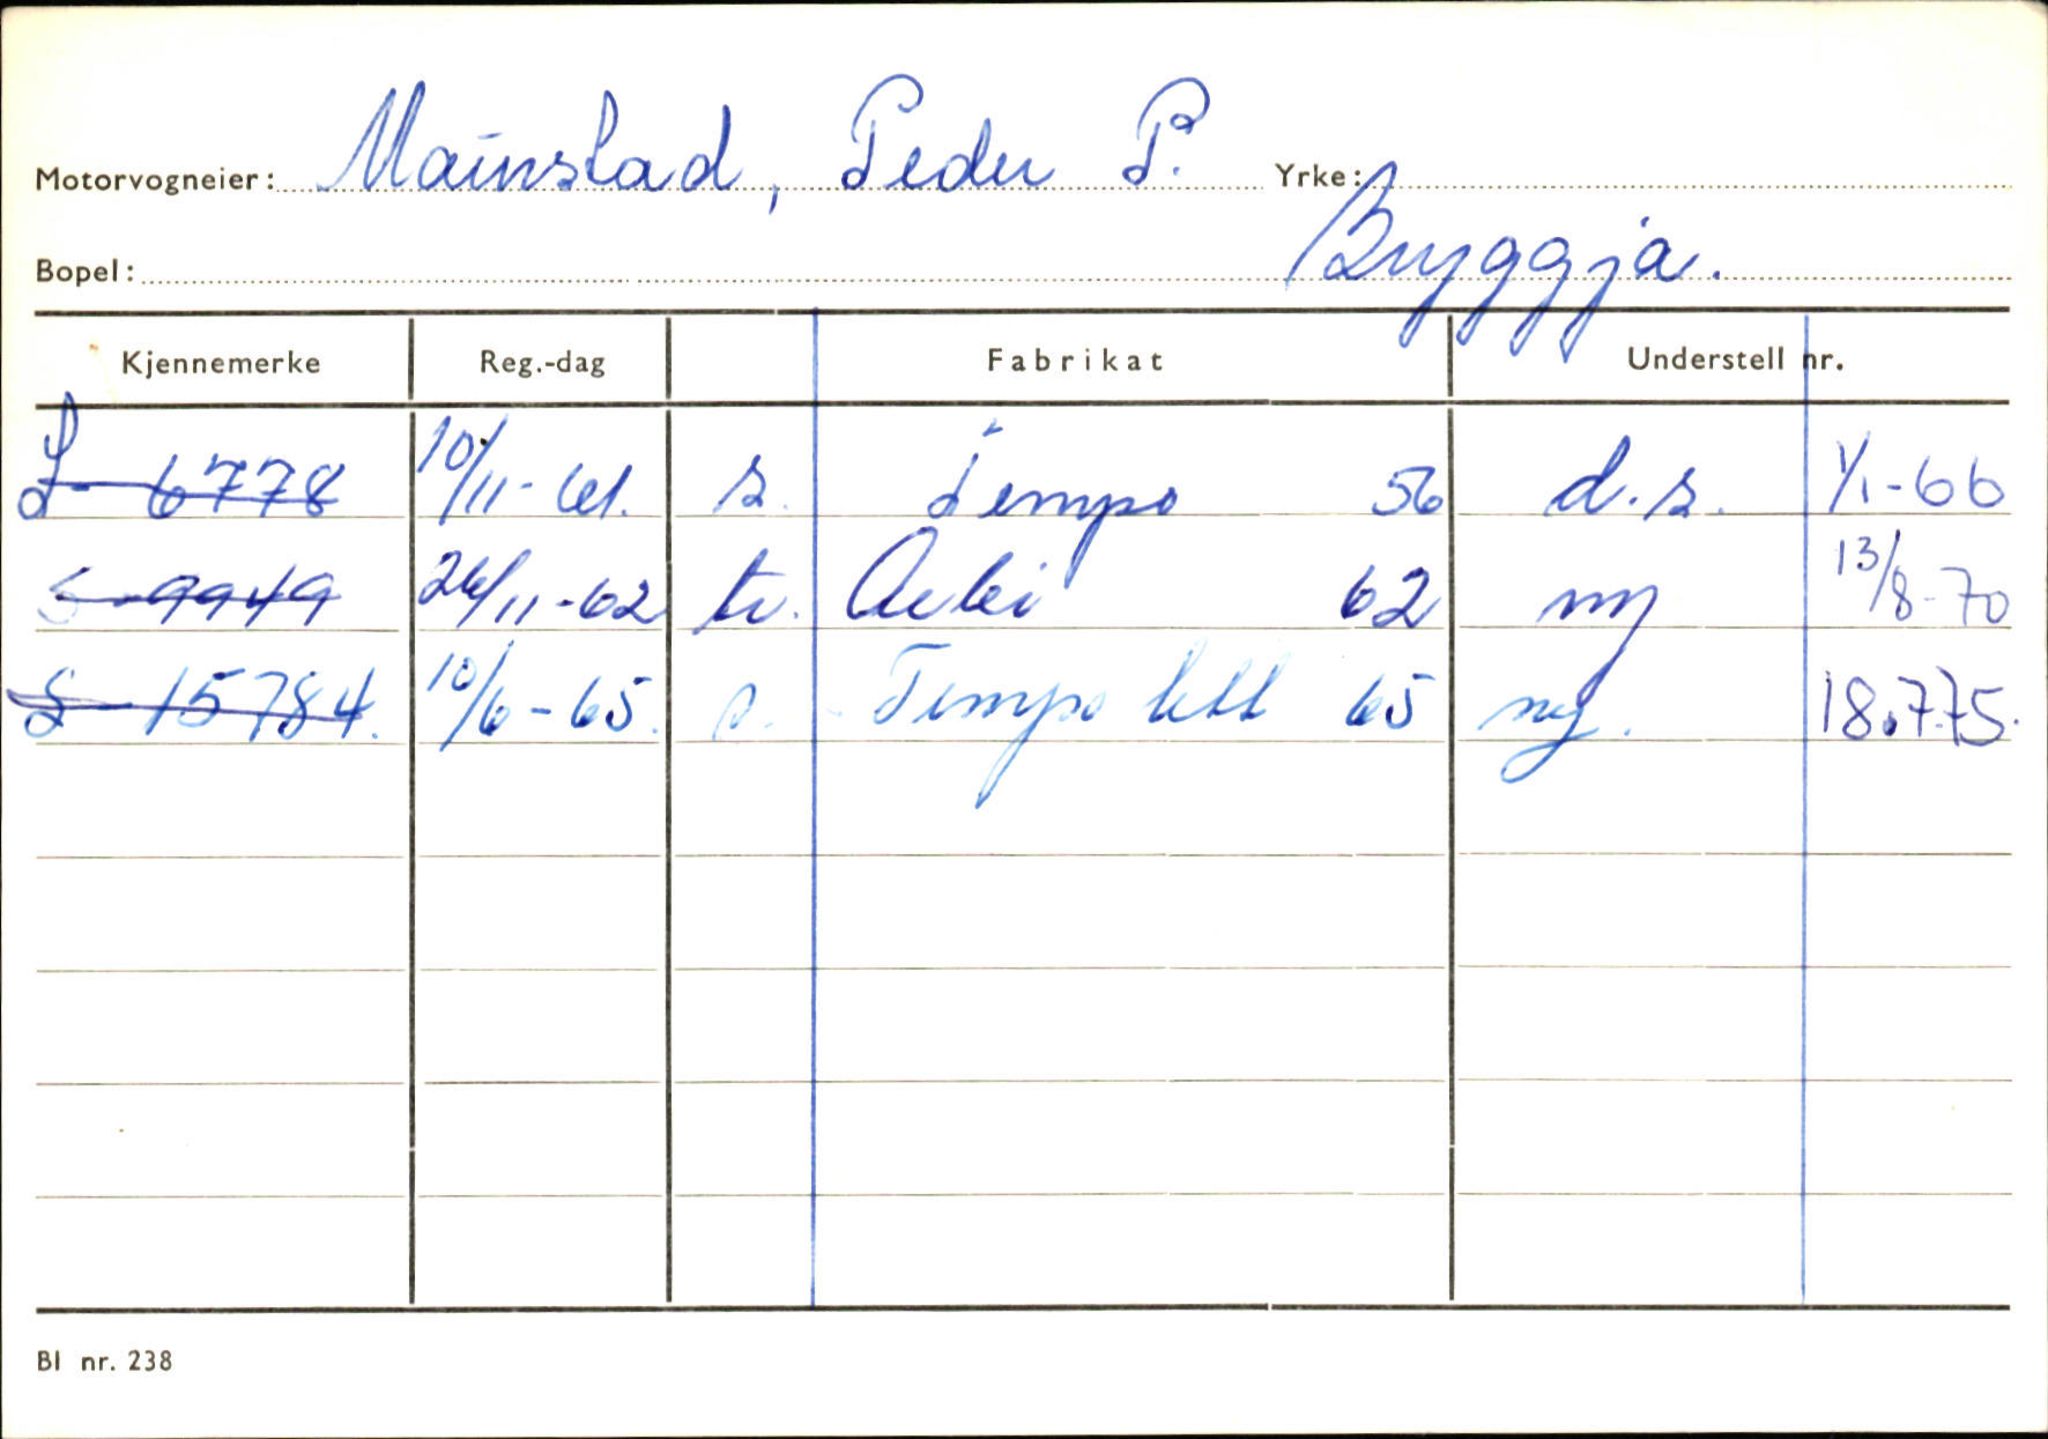 Motorvogneier: Mainstad, Peder P. Yrke:
Bopel: Bryggja.
Kjennemerke Reg.-dag Fabrikat Understell nr.
S- 6778 10/11-61. s. Tempo 56 d.s. 1/1-66
S-9949 26/11-62 tr. Aebi 62 ny 13/8-70
S-15784. 10/6-65. s. Tempo lett 65 ny. 18.7.75.
Bl nr. 238